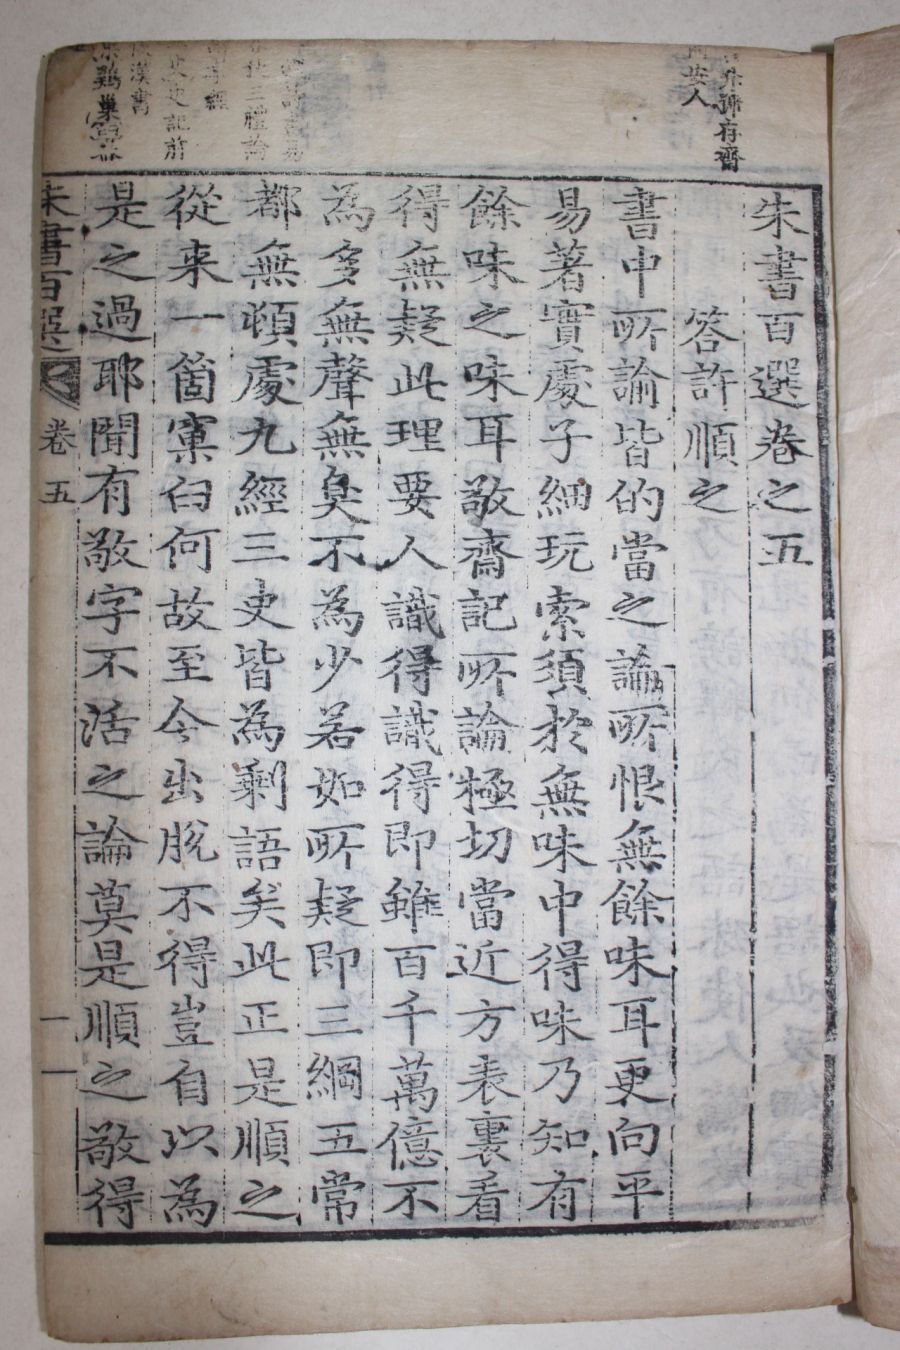 升號存齋
安人
三禮論
史記前
漢書
朱書百選卷之五
答許順之
書中所論皆的當之論所恨無餘味耳更向平
易著實處子細玩索須於無味中得味乃知有
餘味之味耳敬齋記所論極切當近方表裏看
得無疑此理要人識得識得即雖百千萬億不
為多無聲無臭不為少若如所疑即三綱五常
都無頓處九經三史皆為剩語矣此正是順之
從来一箇窠臼何故至今出脫不得豈自以為
是之過耶聞有敬字不活之論莫是順之敬得
朱書百選 卷五 一